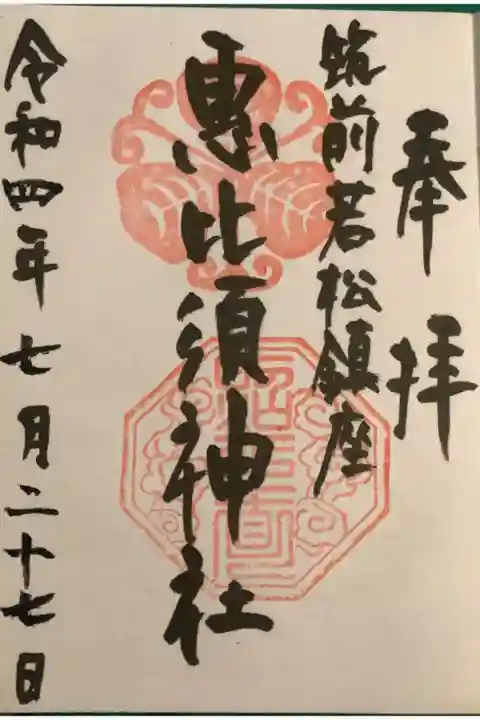 奉拝
筑前若松鎮座
恵比須神社
令和四年七月二十七日